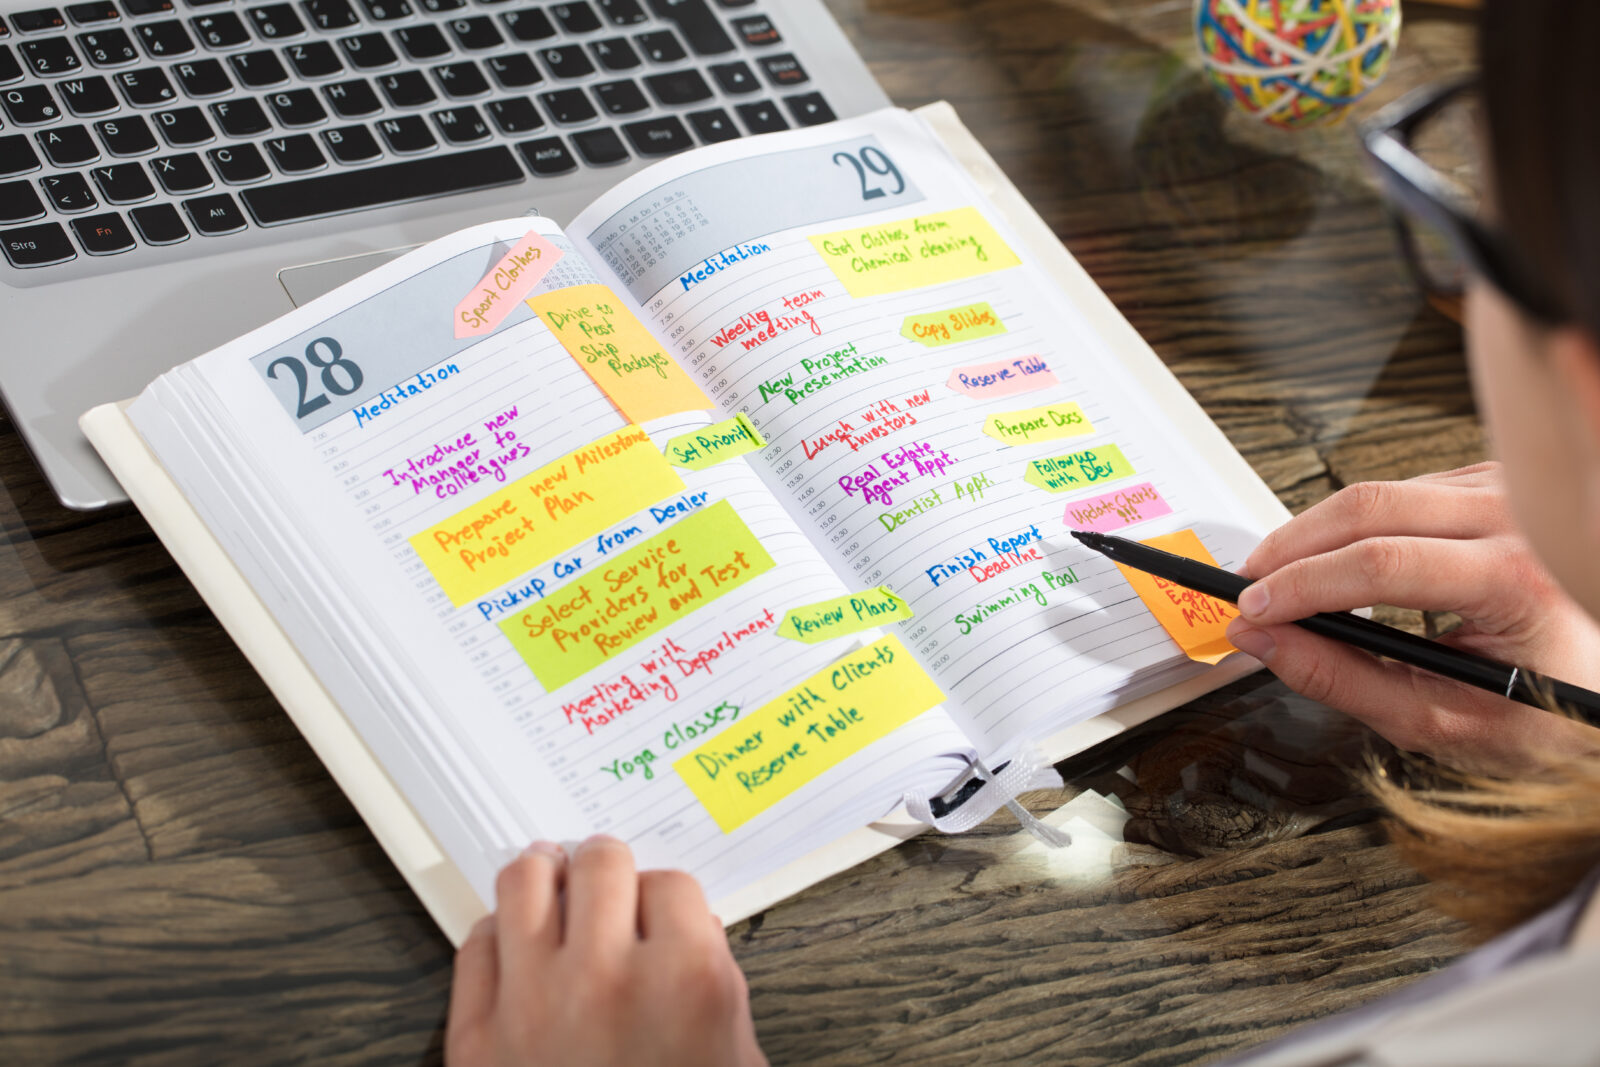 28
Sport Clothes
Drive to
Post
Ship
Packages
Meditation
Introduce new
Manager to
Colleagues
Prepare new Milestone
Project Plan
Set Priority
Pickup Car from Dealer
Select Service
Providers for
Review and Test
Meeting with
Marketing Department
Review Plans
Yoga Classes
Dinner with Clients
Reserve Table
29
Mo Di Mi Do Fr Sa So
Meditation
Got Clothes from
Chemical cleaning
Weekly team
meeting
Copy Slides
New Project
Presentation
Reserve Table
Lunch with new
Investors
Prepare Docs
Real Estate
Agent Appt.
Follow up
with Dev
Dentist Appt.
Update Charts
!!!
Finish Report
Deadline
Swimming Pool
Egg
Milk
Q W E R T Z U I O P Ü
A S D F G H J K L Ö Ä
Y X C V B N M
Strg
Fn
Alt
AltGr
Strg